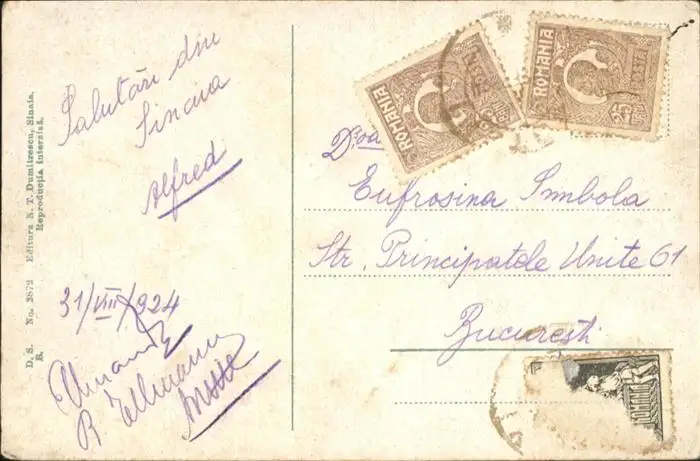 Salutări din
Sinaia
Alfred
31/VIII/924
R Tellmann
D. S. No. 3872 Editura N. T. Dumitrescu, Sinaia.
R. Reproducția interzisă.
ROMANIA
ROMANIA
25 BANI 25
Dșoa
Eufrosina Simbola
Str. Principatele Unite 61
București
ROMANIA